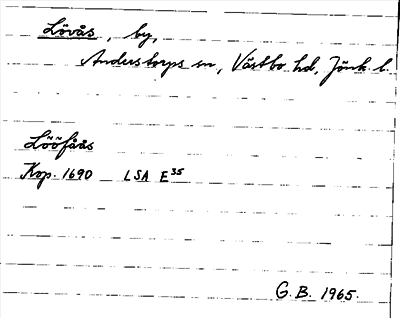 Lövås, by,
Anderstorps sn, Västbo hd, Jönk. l.
Lööfåås
Kop. 1690 LSA E35
G. B. 1965.